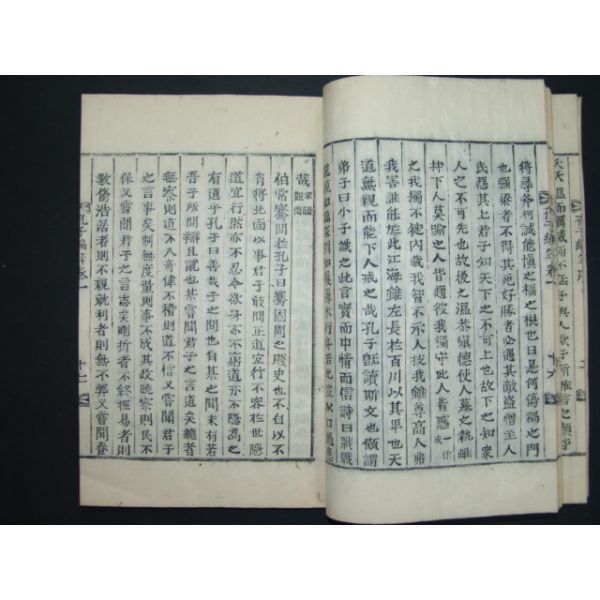 將尋斧柯誠能慎之福之根也曰是何傷禍之門
也強梁者不得其死好勝者必遇其敵盜憎主人
民惡其上君子知天下之不可上也故下之知衆
人之不可先也故後之溫恭慎德使人慕之執雌
持下人莫踰之人皆趨彼我獨守此人皆惑
之我獨不徙內藏我智不示人技我雖尊高人弗
我害誰能於此江海雖左長於百川以其卑也天
道無親而能下人戒之哉孔子旣讀斯文也顧謂
弟子曰小子識之此言實而中情而信詩曰戰戰
兢兢如臨深淵如履薄冰行身如此豈以口過患
哉 家語觀周
伯常騫問於孔子曰騫固周之賤史也不自以不
肖將北面以事君子敢問正道宜行不容於世隱
道宜行然亦不忍今欲身亦不窮道亦不隱爲之
有道乎孔子曰善哉子之問也自某之聞未有若
吾子所問辯且說也某嘗聞君子之言道矣聽者
無察則道不入奇偉不稽則道不信又嘗聞君子
之言事矣制無度量則事不成其政曉察則民不
保又嘗聞君子之言志矣剛折者不終徑易者則
數傷浩倨者則不親就利者則無不弊又嘗聞養
孔子編年卷一
十七